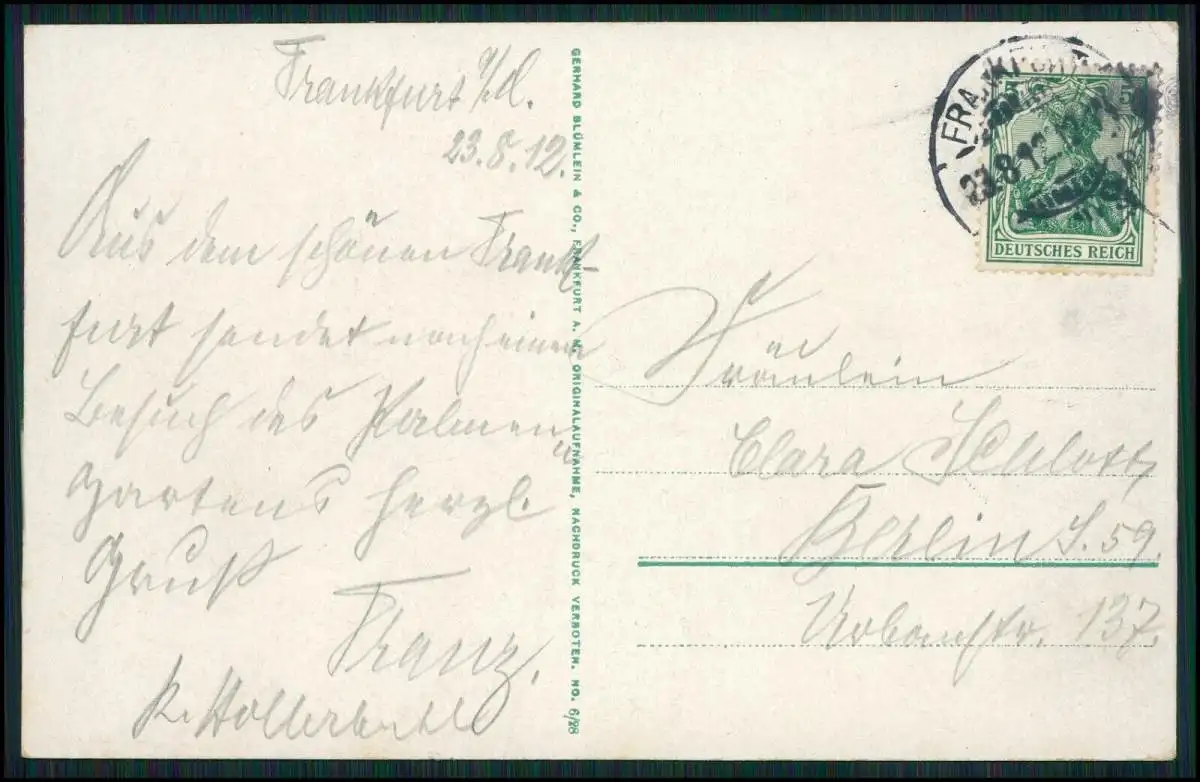 Frankfurt a/M.
23.8.12.
Aus dem schönen Frank-
furt sendet nach einem
Besuch des Palmen
Gartens herzl.
Gruß
Franz.
GERHARD BLÜMLEIN & CO., FRANKFURT A. M. ORIGINALAUFNAHME, NACHDRUCK VERBOTEN. NO. 6/28
FRANKFURT
23.8.12
5 5
DEUTSCHES REICH
Fräulein
Clara
Berlin S. 59.
Urbanstr. 137.